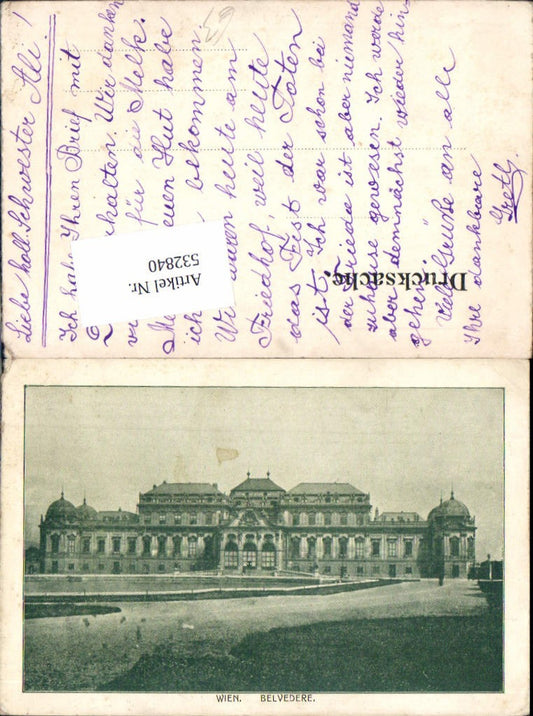 Liebe holl. Schwester Ali!
Ich habe Ihren Brief mit
halten. Wir danken
für die Melk.
neuen Hut habe
ich bekommen.
Wir waren heute am
Friedhof, weil heute
das Fest der Toten
ist. Ich war schon bei
der Frieda ist aber niemand
zuhause gewesen. Ich werde
aber demnächst wieder hin
gehen.
Viele Grüße an alle
Ihre dankbare
Gretl.
59
Artikel Nr.
532840
Drucksache.
WIEN. BELVEDERE.